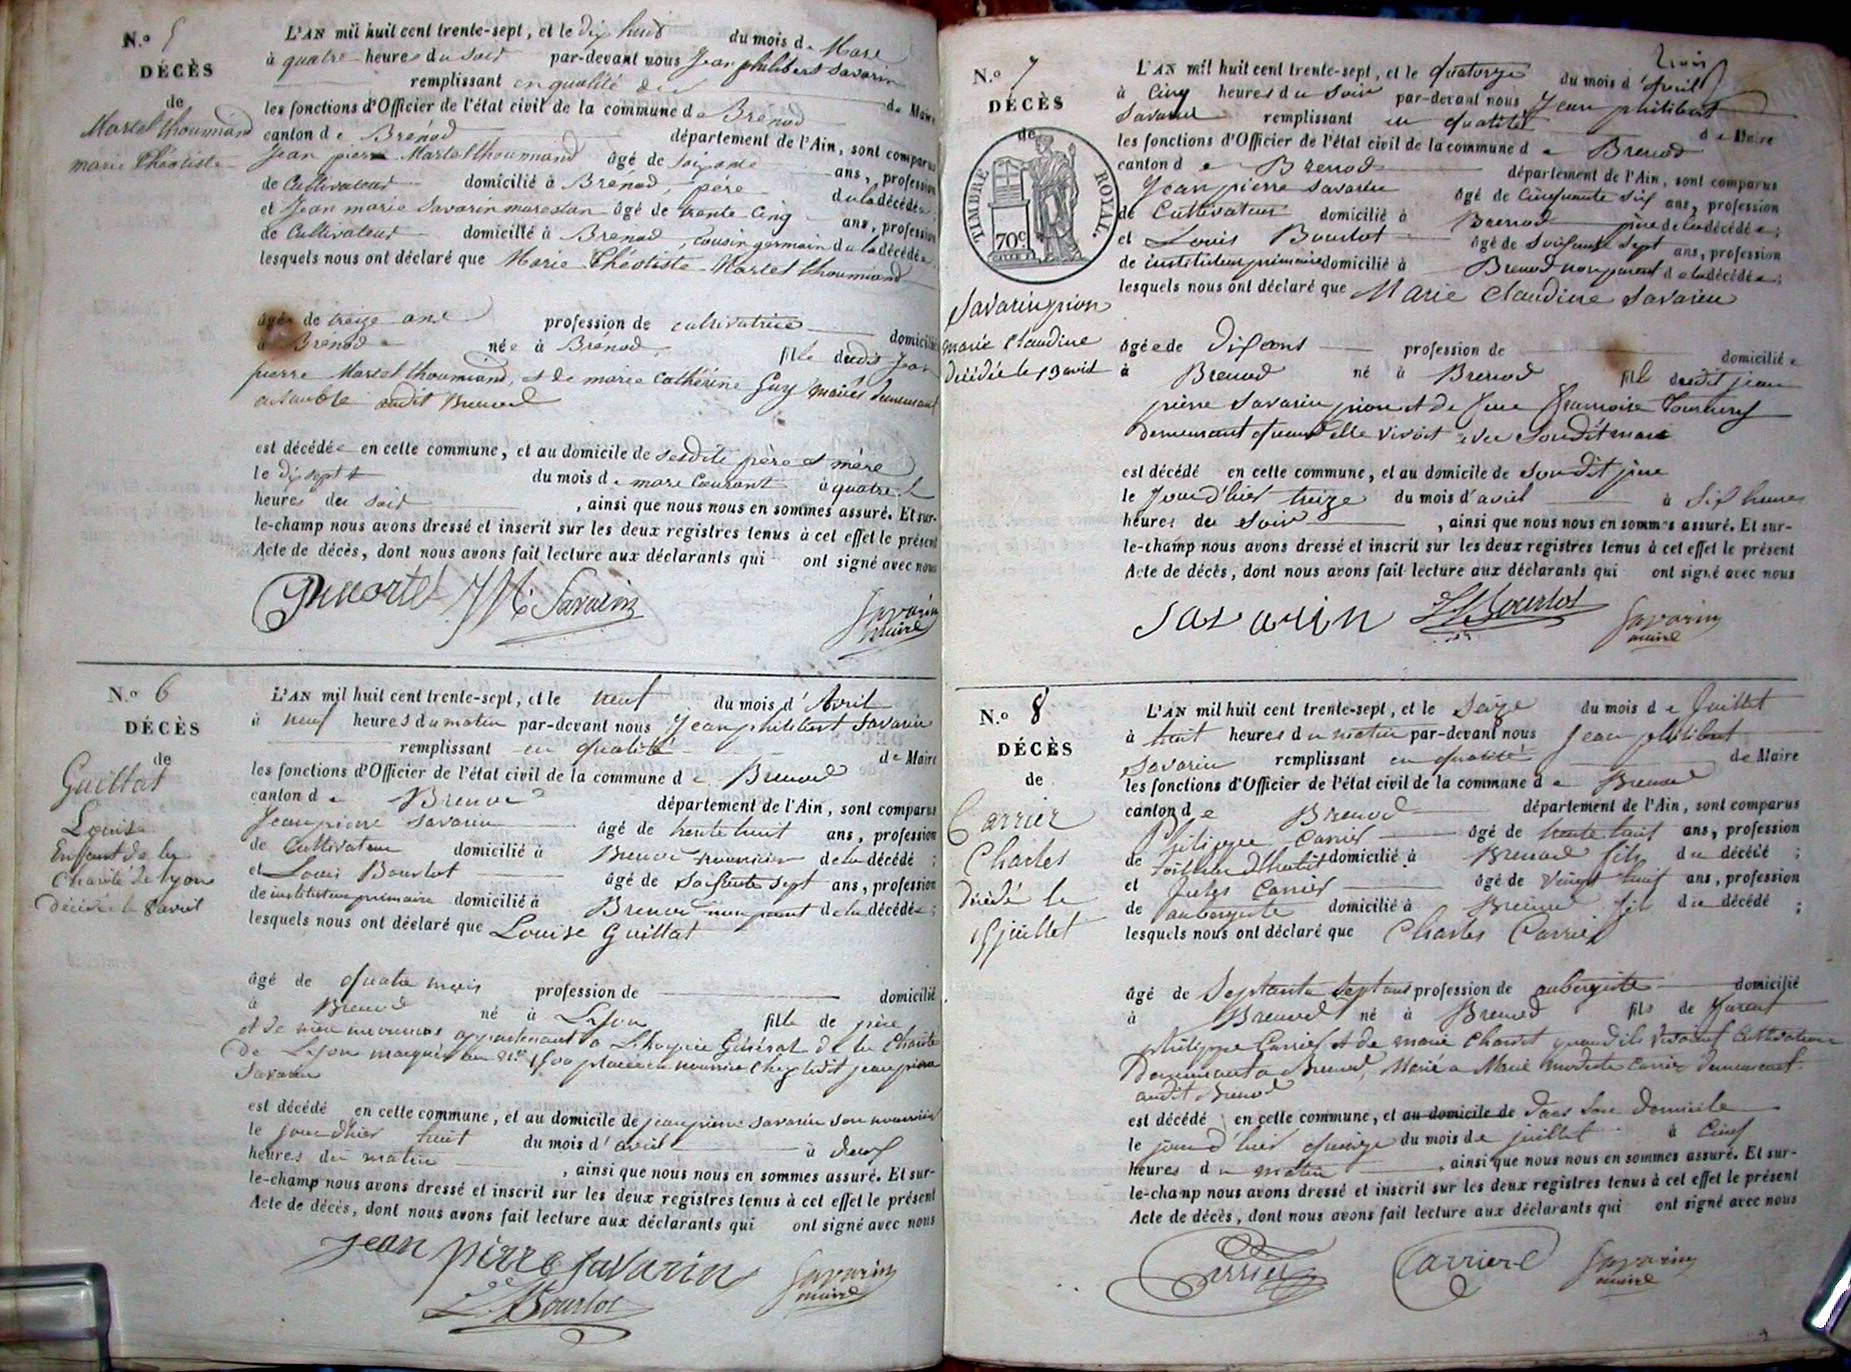 N.o 5
DÉCÈS
de
Martel thoumiand
marie théotiste
L'AN mil huit cent trente-sept, et le dix huit du mois de Mars
à quatre heures du soir par-devant nous Jean philibert Savarin
remplissant en qualité de
les fonctions d'Officier de l'état civil de la commune de Brénod de Maire
canton de Brénod département de l'Ain, sont comparus
Jean pierre Martel thoumiand âgé de soixante ans, profession
de Cultivateur domicilié à Brénod, père de la décédée
et Jean marie Savarin âgé de trente cinq ans, profession
de Cultivateur domicilié à Brénod, cousin germain de la décédée
lesquels nous ont déclaré que Marie théotiste Martel thoumiand
âgée de treize ans profession de cultivatrice domiciliée
à Brénod née à Brénod, fille dudit Jean
pierre Martel thoumiand, et de marie Catherine Guy mariés demeurant
ensemble audit Brenod
est décédée en cette commune, et au domicile de sesdits père et mère
le dix sept du mois de mars Courant à quatre
heures du soir , ainsi que nous nous en sommes assuré. Et sur-
le-champ nous avons dressé et inscrit sur les deux registres tenus à cet effet le présent
Acte de décès, dont nous avons fait lecture aux déclarants qui ont signé avec nous
Savarin Savarin
maire
N.o 6
DÉCÈS
de
Guillat
Louise
Enffant de la
Charité de Lyon
Décédée le 8 avril
L'AN mil huit cent trente-sept, et le neuf du mois d'Avril
à neuf heures du matin par-devant nous Jean philibert Savarin
remplissant en qualité de Maire
les fonctions d'Officier de l'état civil de la commune de Brenod
canton de Brenod département de l'Ain, sont comparus
Jean pierre Savarin âgé de trente huit ans, profession
de Cultivateur domicilié à Brenod nourricier de la décédé ;
et Louis Bourlot âgé de soixante sept ans, profession
de instituteur primaire domicilié à Brenod non parent de la décédée ;
lesquels nous ont déclaré que Louise Guillat
âgé de quatre mois profession de domicilié
à Brenod né à Lyon fille de père
et de mère inconnus appartenant à L'hospice Général de la Charité
de Lyon marquée au n.o 1500 placée en nourrice chez ledit jean pierre
Savarin
est décédé en cette commune, et au domicile de jean pierre Savarin son nourricier
le jour d'hier huit du mois d'avril à deux
heures du matin , ainsi que nous nous en sommes assuré. Et sur-
le-champ nous avons dressé et inscrit sur les deux registres tenus à cet effet le présent
Acte de décès, dont nous avons fait lecture aux déclarants qui ont signé avec nous
jean pirre savarin Savarin
L Bourlot maire
N.o 7
DÉCÈS
de
TIMBRE ROYAL.
70c
Savarin pion
marie Claudine
décédée le 13 avril
L'AN mil huit cent trente-sept, et le quatorze du mois d'Avril
à Cinq heures du soir par-devant nous Jean philibert
Savarin remplissant en qualité de Maire
les fonctions d'Officier de l'état civil de la commune de Brenod
canton de Brenod département de l'Ain, sont comparus
Jean pierre Savarin âgé de cinquante six ans, profession
de Cultivateur domicilié à Brenod père de la décédée ;
et Louis Bourlot âgé de soixante sept ans, profession
de instituteur primaire domicilié à Brenod non parent de la décédée ;
lesquels nous ont déclaré que Marie Claudine Savarin
âgée de dix ans profession de domiciliée
à Brenod né à Brenod fille dudit jean
pierre Savarin pion et de feue françoise
demeurant quand elle vivoit avec Soudit mari
est décédé en cette commune, et au domicile de Sondit père
le Jour d'hier treize du mois d'avril à six heures
heures du soir , ainsi que nous nous en sommes assuré. Et sur-
le-champ nous avons dressé et inscrit sur les deux registres tenus à cet effet le présent
Acte de décès, dont nous avons fait lecture aux déclarants qui ont signé avec nous
savarin L Bourlot Savarin
maire
N.o 8
DÉCÈS
de
Carrier
Charles
Décédé le
15 juillet
L'AN mil huit cent trente-sept, et le Seize du mois de Juillet
à huit heures du matin par-devant nous Jean philibert
Savarin remplissant en qualité de Maire
les fonctions d'Officier de l'état civil de la commune de Brenod
canton de Brenod département de l'Ain, sont comparus
Philippe Carrier âgé de trente huit ans, profession
de domicilié à Brenod fils du décédé ;
et Jules Carrier âgé de vingt huit ans, profession
de aubergiste domicilié à Brenod fils du décédé ;
lesquels nous ont déclaré que Charles Carrier
âgé de Septante sept ans profession de aubergiste domicilié
à Brenod né à Brenod fils de
philippe Carrier et de marie Charvet quand ils vivoient Cultivateurs
Demeurant a Brenod, Marié a Marie modeste Carrier demeurant
audit Brenod
est décédé en cette commune, et au domicile de dans Son Domicile
le jour d'hier quinze du mois de juillet à Cinq
heures du matin , ainsi que nous nous en sommes assuré. Et sur-
le-champ nous avons dressé et inscrit sur les deux registres tenus à cet effet le présent
Acte de décès, dont nous avons fait lecture aux déclarants qui ont signé avec nous
Carrier Savarin
maire